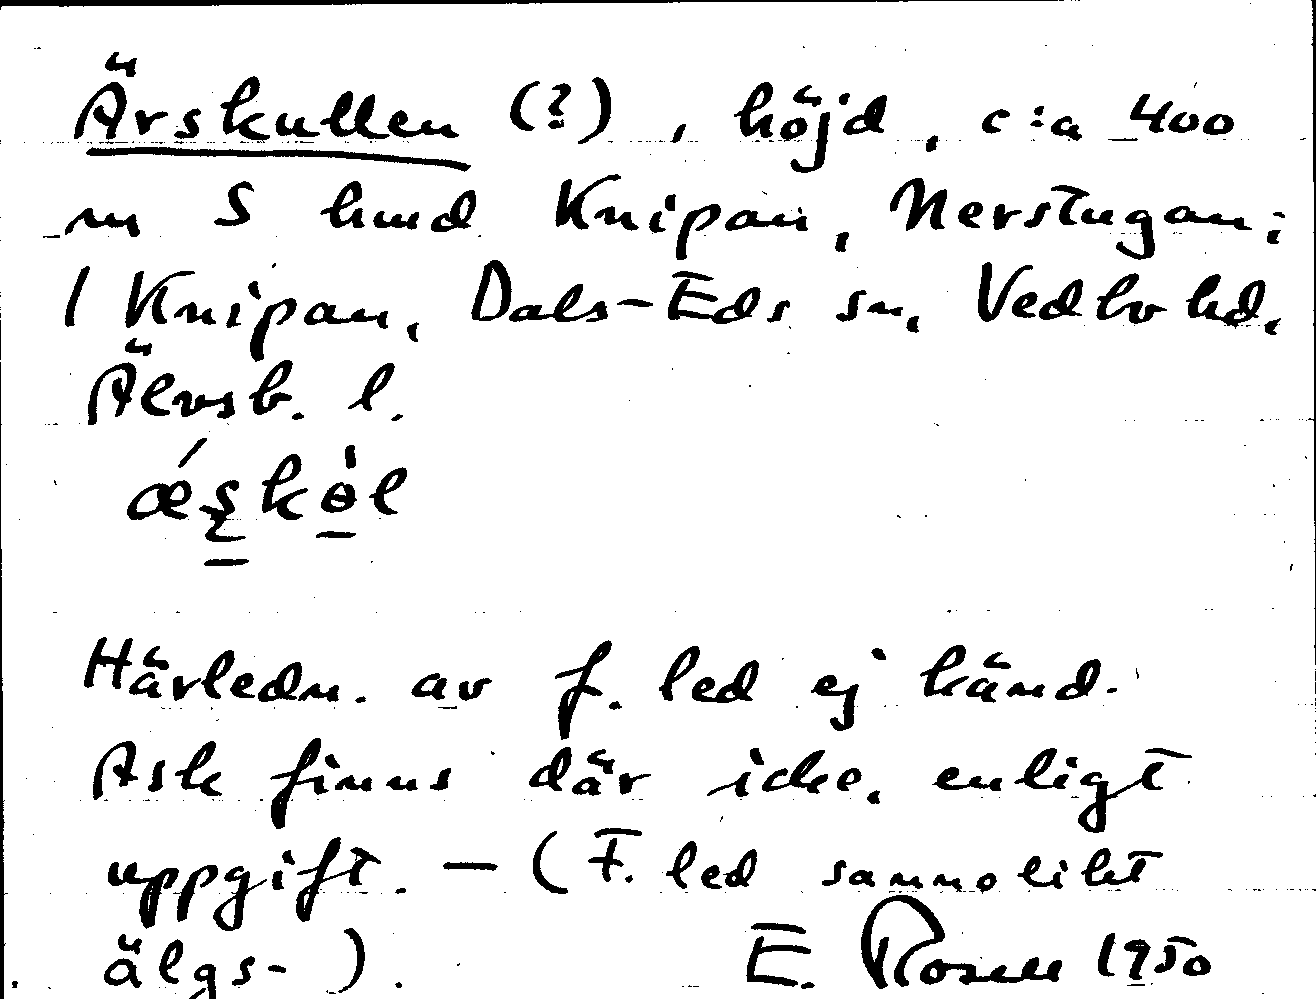 Ärskullen (?), höjd, c:a 400
m S hmd Knipan, Nerstugan;
1 Knipan, Dals-Eds sn, Vedbo hd,
Älvsb. l.
Härledn. av f. led ej känd.
Ask finns där icke, enligt
uppgift. – (F. led sannolikt
älgs-).
E. Rosell 1950